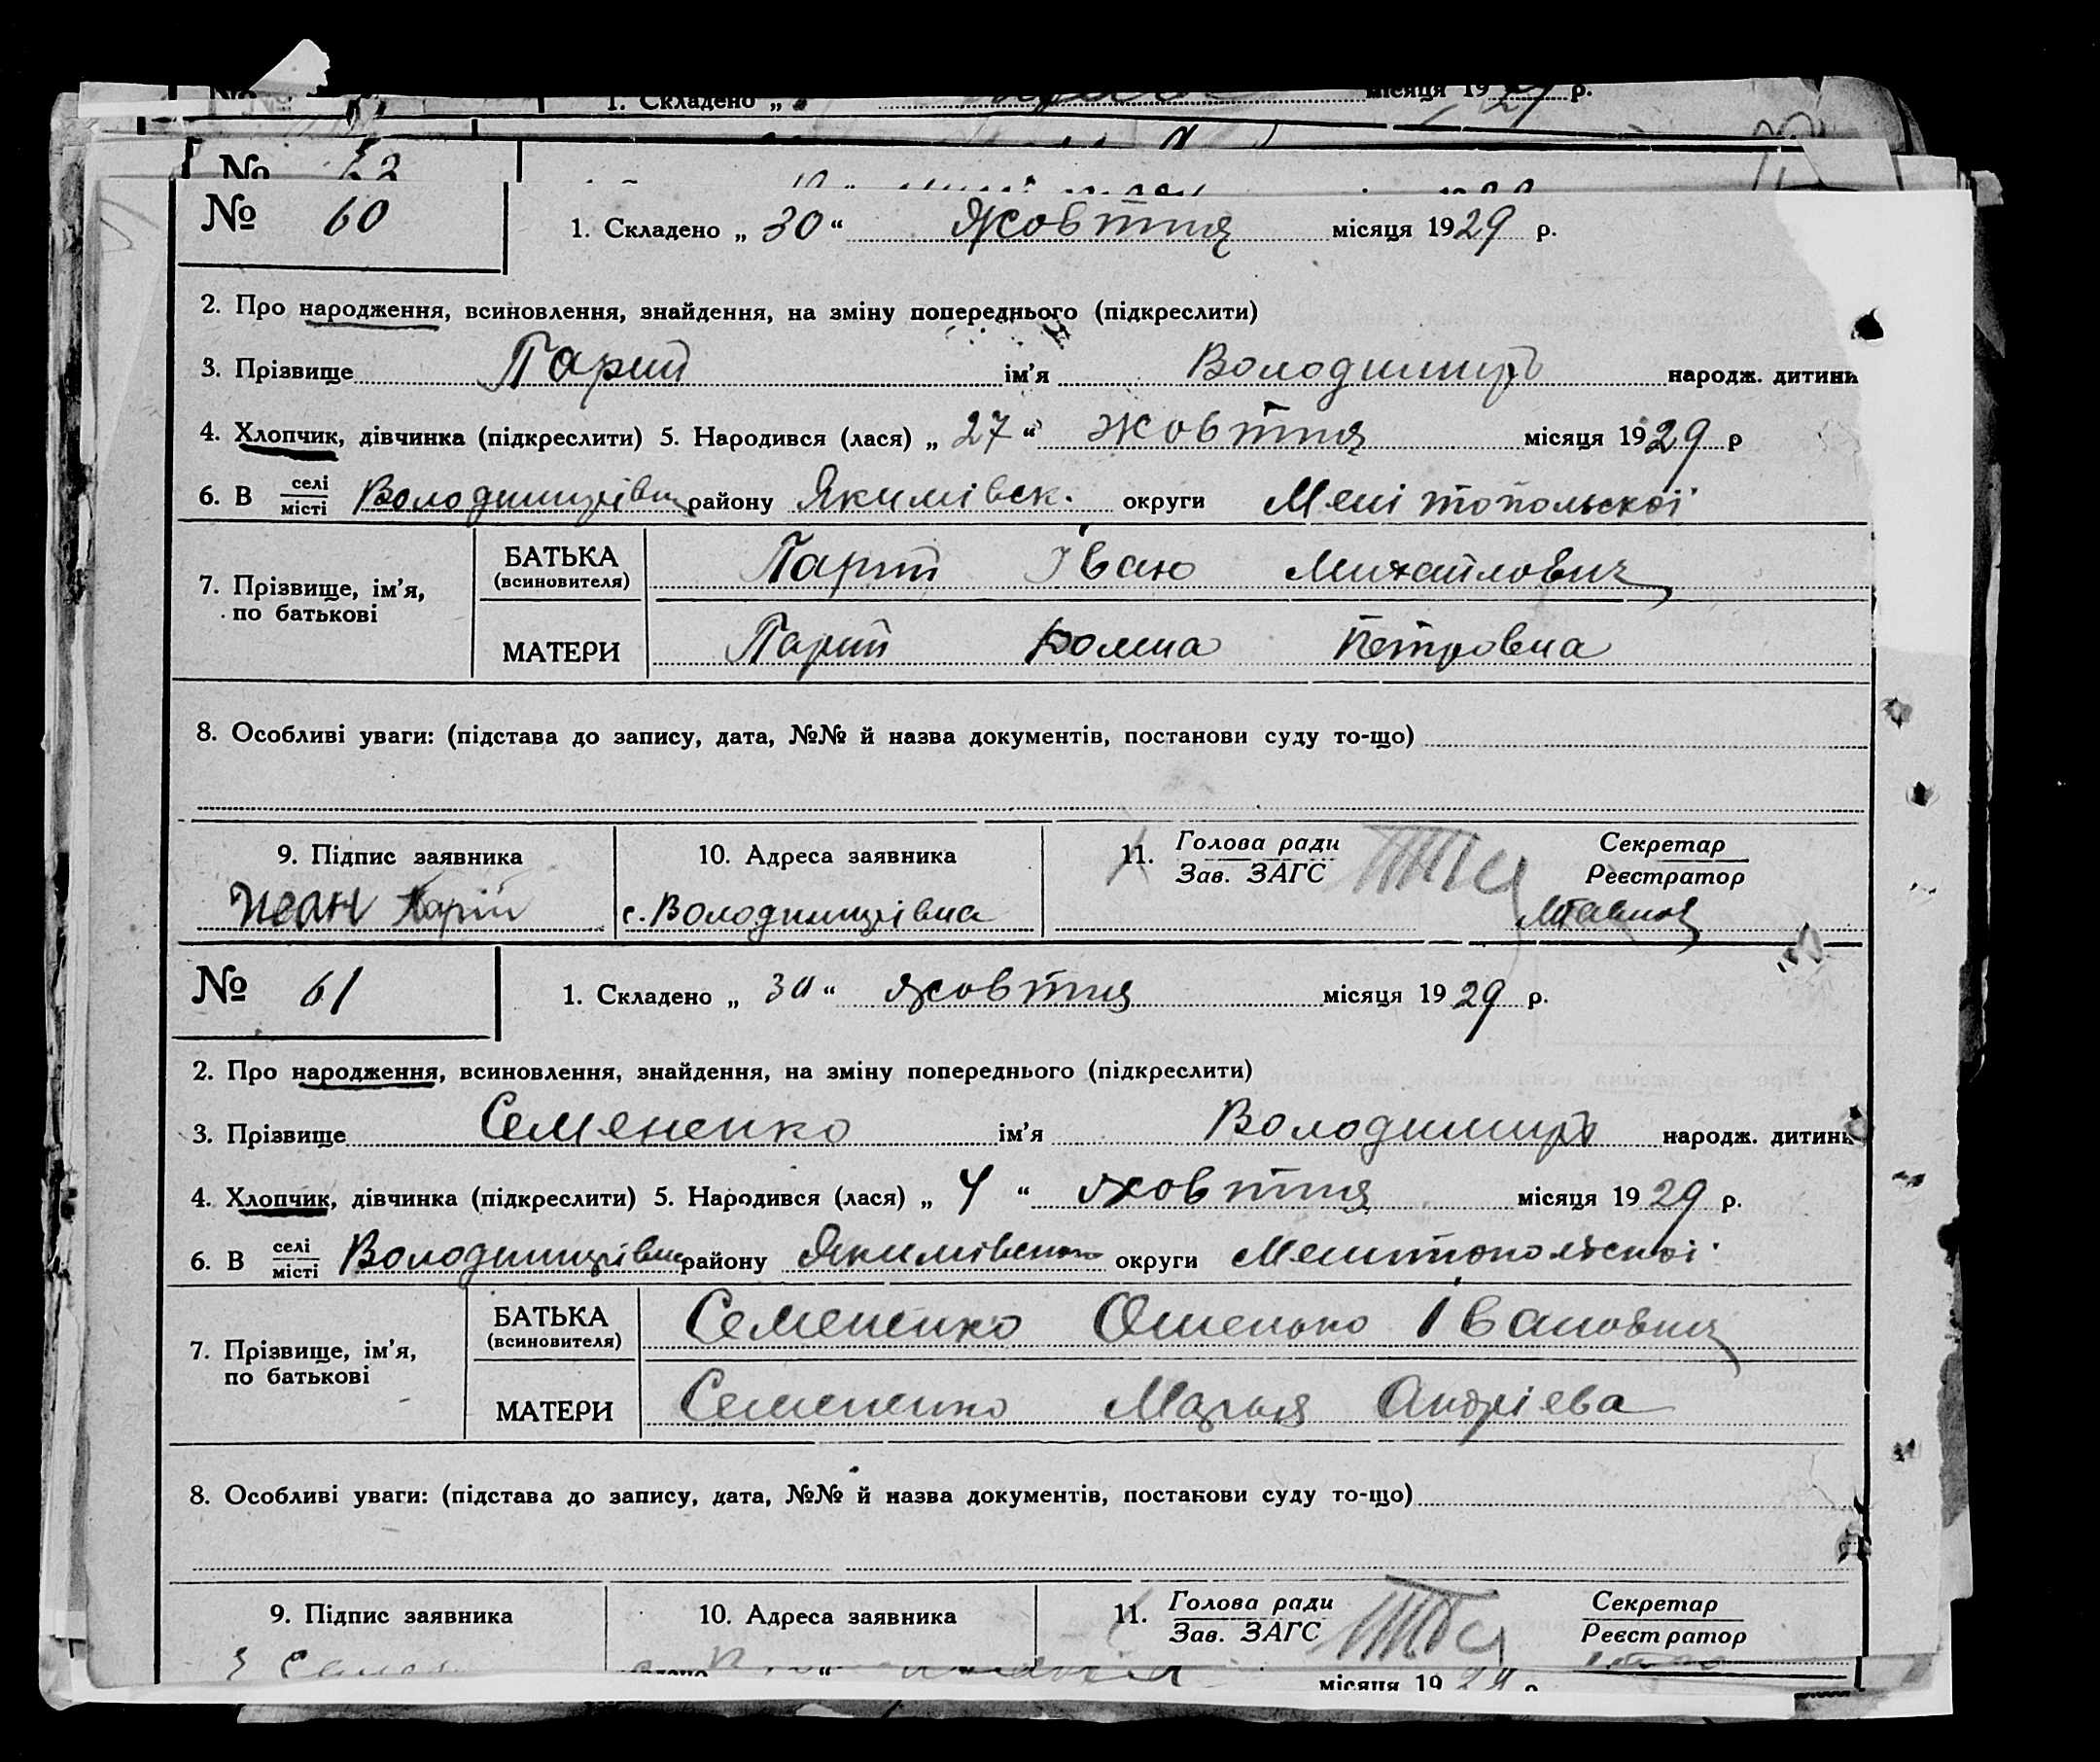 1. Складено „ місяця 19 29 р.
№
№ 60
1. Складено „ 30 “ Жовтня місяця 1929 р.
2. Про народження, всиновлення, знайдення, на зміну попереднього (підкреслити)
3. Прізвище Парий ім’я Володимиръ народж. дитини
4. Хлопчик, дівчинка (підкреслити) 5. Народився (лася) „ 27 “ жовтня місяця 1929 р
6. В селі/місті Володимирівці району Якимівск. округи Мелітопольскої
7. Прізвище, ім’я, по батькові
БАТЬКА (всиновителя) Парий Іван Михайлович
МАТЕРИ Парий Петровна
8. Особливі уваги: (підстава до запису, дата, №№ й назва документів, постанови суду то-що)
9. Підпис заявника
10. Адреса заявника
11. Голова ради Зав. ЗАГС
Секретар Реєстратор
Иван Парий
с. Володимирівна
№ 61
1. Складено „ 30 “ жовтня місяця 1929 р.
2. Про народження, всиновлення, знайдення, на зміну попереднього (підкреслити)
3. Прізвище Семененко ім’я Володимиръ народж. дитини
4. Хлопчик, дівчинка (підкреслити) 5. Народився (лася) „ 4 “ жовтня місяця 1929 р.
6. В селі/місті Володимирівці району округи Мелитопольскої
7. Прізвище, ім’я, по батькові
БАТЬКА (всиновителя) Семененко Іванович
МАТЕРИ Семененко Марья Андріева
8. Особливі уваги: (підстава до запису, дата, №№ й назва документів, постанови суду то-що)
9. Підпис заявника
10. Адреса заявника
11. Голова ради Зав. ЗАГС
Секретар Реєстратор
місяця 19 29 р